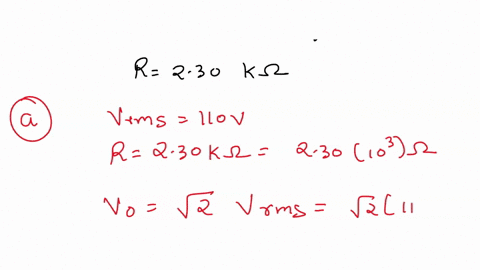 R = 2.30 KΩ
a
Vrms = 110V
R = 2.30 KΩ = 2.30 (10³) Ω
V₀ = √2 Vrms = √2 ( 11